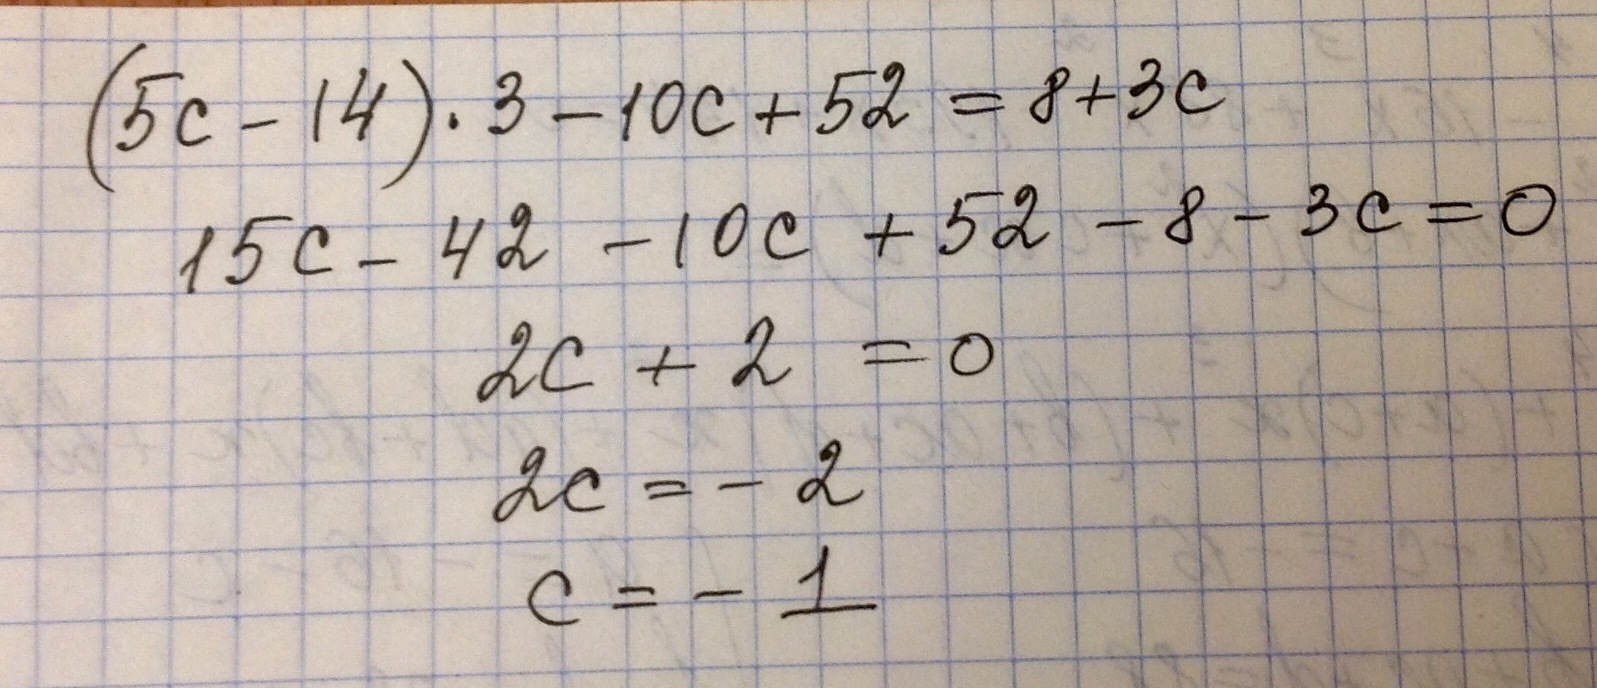 (5c - 14) · 3 - 10c + 52 = 8 + 3c
15c - 42 - 10c + 52 - 8 - 3c = 0
2c + 2 = 0
2c = - 2
c = - 1